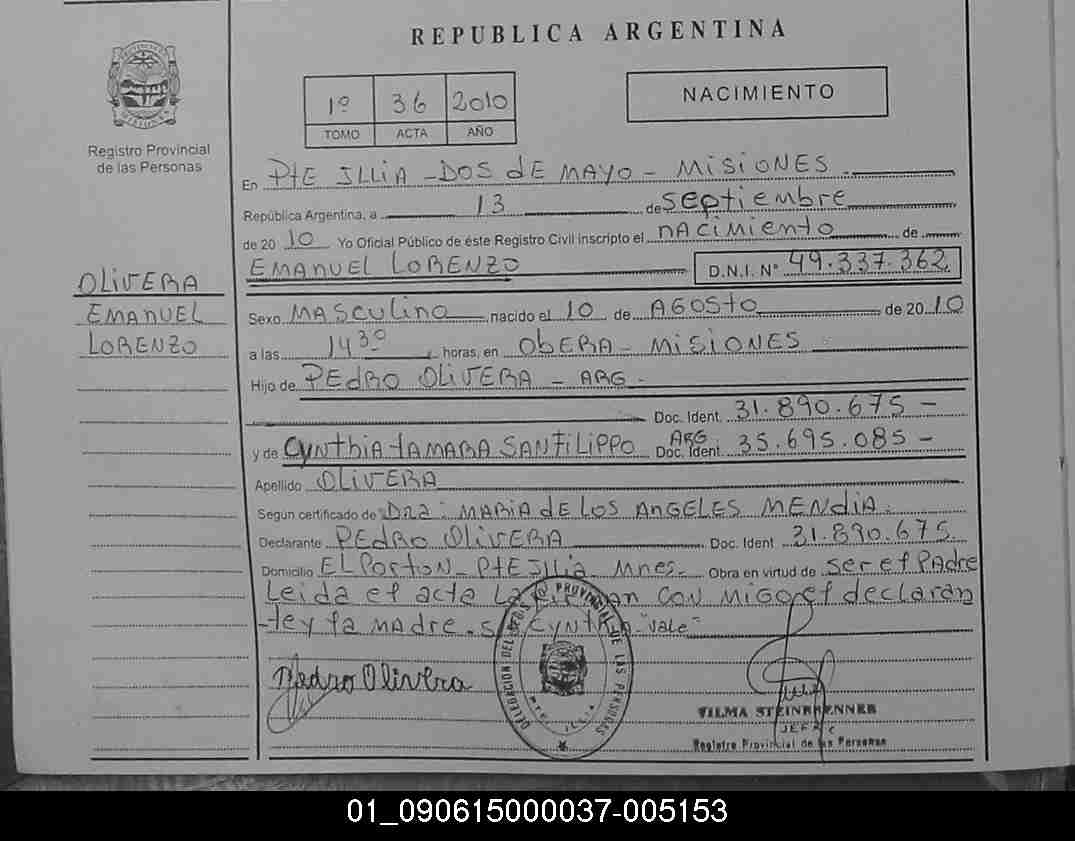 REPUBLICA ARGENTINA
PROVINCIA DE MISIONES
Registro Provincial
de las Personas
1º 36 2010
TOMO ACTA AÑO
NACIMIENTO
En PtE ILLIA - DOS dE MAYO - MISIONES
República Argentina, a 13 de SEptiembre
de 2010 Yo Oficial Público de éste Registro Civil inscripto el NACIMIENTO de
EMANUEL LORENZO D.N.I. Nº 49.337.362
OLIVERA
EMANUEL
LORENZO
Sexo MASCULINO nacido el 10 de AGOSTO de 2010
a las 14 30 horas, en OBERA - MISIONES
Hijo de PEDRO OLIVERA - ARG -
Doc. Ident. 31.890.675 -
y de CYNTHIA TAMARA SANFILIPPO ARG Doc. Ident. 35.695.085 -
Apellido OLIVERA
Según certificado de Dra: MARIA dE LOS ANGELES MENDIA.
Declarante PEDRO OLIVERA Doc. Ident. 31.890.675
Domicilio EL PORTON - PtE ILLIA - Mnes. Obra en virtud de ser el PADRE
Leida el acta LA con MIGO el declaran
te y la MADRE. CYNTHIA "Vale"
Pedro Olivera
DELEGACION DEL REG. PROVINCIAL DE LAS PERSONAS
VILMA STEINBRENNER
JEFE
Registro Provincial de las Personas
01_090615000037-005153